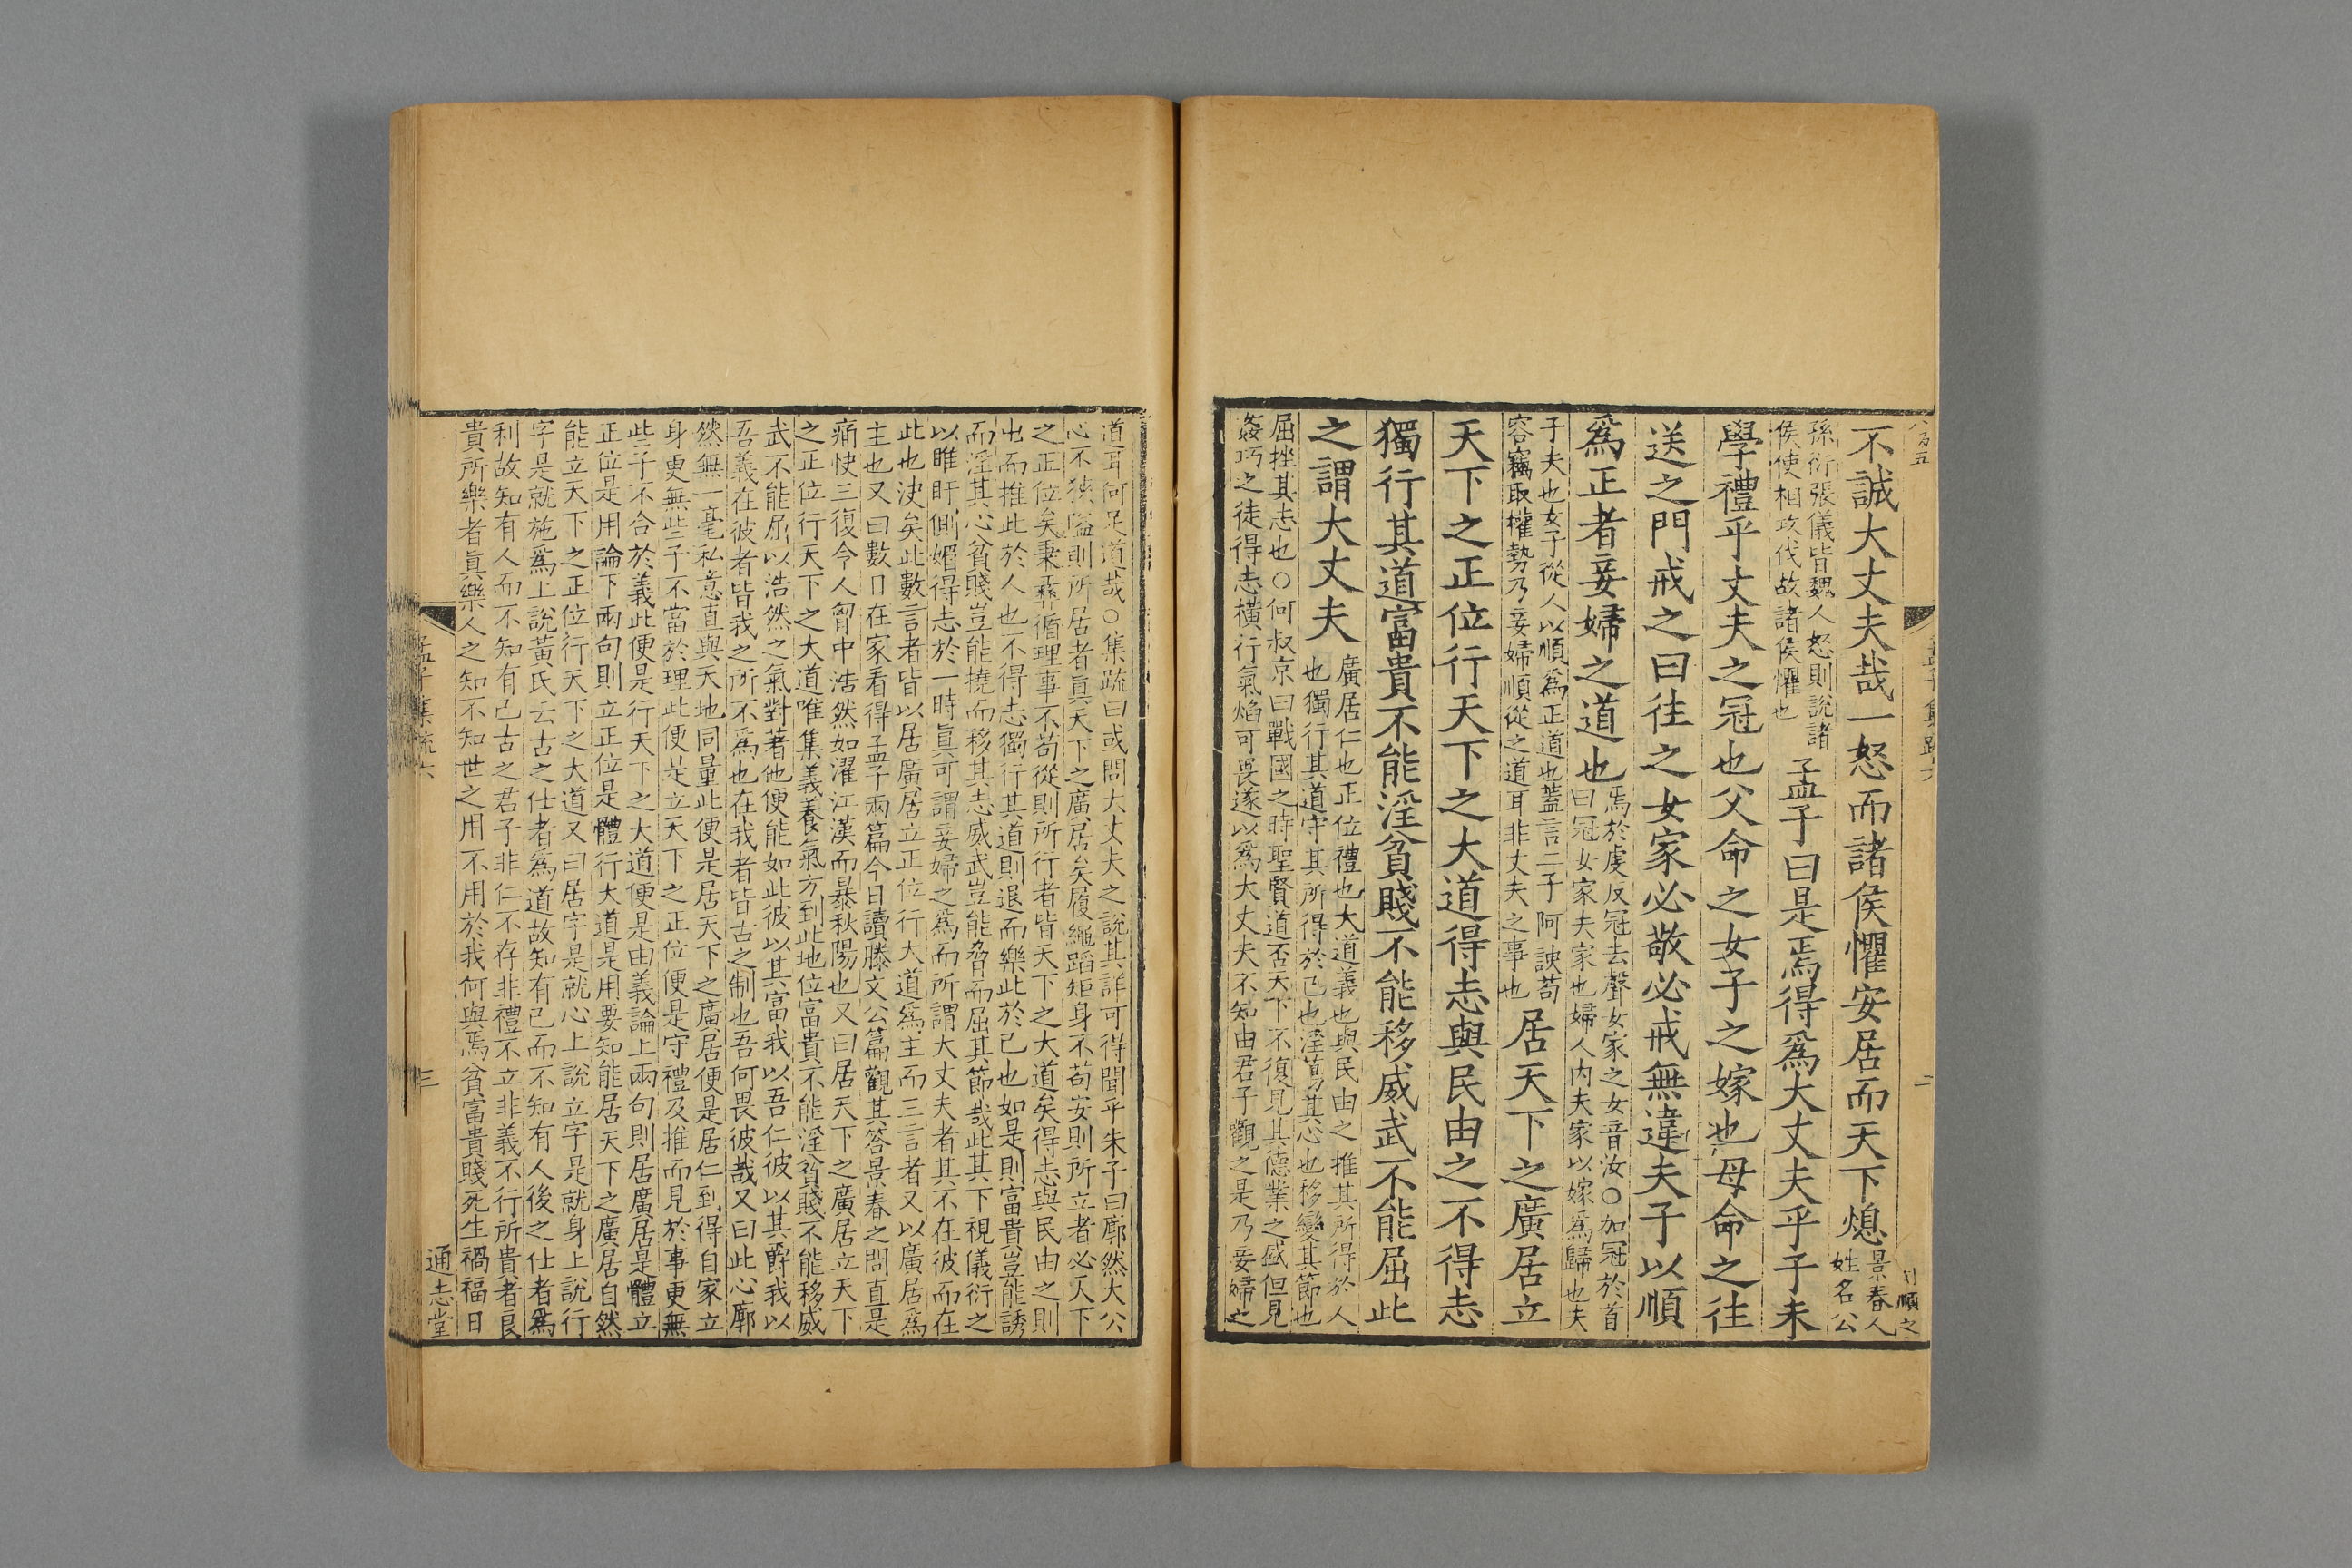 不誠大丈夫哉一怒而諸侯懼安居而天下熄景春人姓名公
孫衍張儀皆魏人怒則說諸侯使相攻伐故諸侯懼也孟子曰是焉得爲大丈夫乎子未
學禮乎丈夫之冠也父命之女子之嫁也母命之往
送之門戒之曰往之女家必敬必戒無違夫子以順
爲正者妾婦之道也焉於虔反冠去聲女家之女音汝○加冠於首曰冠女家夫家也婦人内夫家以嫁爲歸也夫
子夫也女子從人以順爲正道也蓋言二子阿諛苟容竊取權勢乃妾婦順從之道耳非丈夫之事也居天下之廣居立
天下之正位行天下之大道得志與民由之不得志
獨行其道富貴不能淫貧賤不能移威武不能屈此
之謂大丈夫廣居仁也正位禮也大道義也與民由之推其所得於人也獨行其道守其所得於己也淫蕩其心也移變其節也
屈挫其志也○何叔京曰戰國之時聖賢道否天下不復見其德業之盛但見
姦巧之徒得志橫行氣焰可畏遂以爲大丈夫不知由君子觀之是乃妾婦之
道耳何足道哉○集疏曰或問大丈夫之說其詳可得聞乎朱子曰廓然大公
心不狹隘則所居者眞天下之廣居矣履繩蹈矩身不苟安則所立者必天下
之正位矣秉彝循理事不苟從則所行者皆天下之大道矣得志與民由之則
出而推此於人也不得志獨行其道則退而樂此於已也如是則富貴豈能誘
而淫其心貧賤豈能撓而移其志威武豈能脅而屈其節哉此其下視儀衍之
以睢盱側媚得志於一時眞可謂妾婦之爲而所謂大丈夫者其不在彼而在
此也決矣此數言者皆以居廣居立正位行大道爲主而三言者又以廣居爲
主也又曰數日在家看得孟子兩篇今日讀滕文公篇觀其答景春之問直是
痛快三復令人胷中浩然如濯江漢而暴秋陽也又曰居天下之廣居立天下
之正位行天下之大道唯集義養氣方到此地位富貴不能淫貧賤不能移威
武不能屈以浩然之氣對著他便能如此彼以其富我以吾仁彼以其爵我以
吾義在彼者皆我之所不爲也在我者皆古之制也吾何畏彼哉又曰此心廓
然無一毫私意直與天地同量此便是居天下之廣居便是居仁到得自家立
身更無些子不當於理此便是立天下之正位便是守禮及推而見於事更無
些子不合於義此便是行天下之大道便是由義論上兩句則居廣居是體立
正位是用論下兩句則立正位是體行大道是用要知能居天下之廣居自然
能立天下之正位行天下之大道又曰居字是就心上說立字是就身上說行
字是就施爲上說黃氏云古之仕者爲道故知有己而不知有人後之仕者爲
利故知有人而不知有己古之君子非仁不存非禮不立非義不行所貴者良
貴所樂者眞樂人之知不知世之用不用於我何與焉貧富貴賤死生禍福日
孟子集疏六
三
通志堂